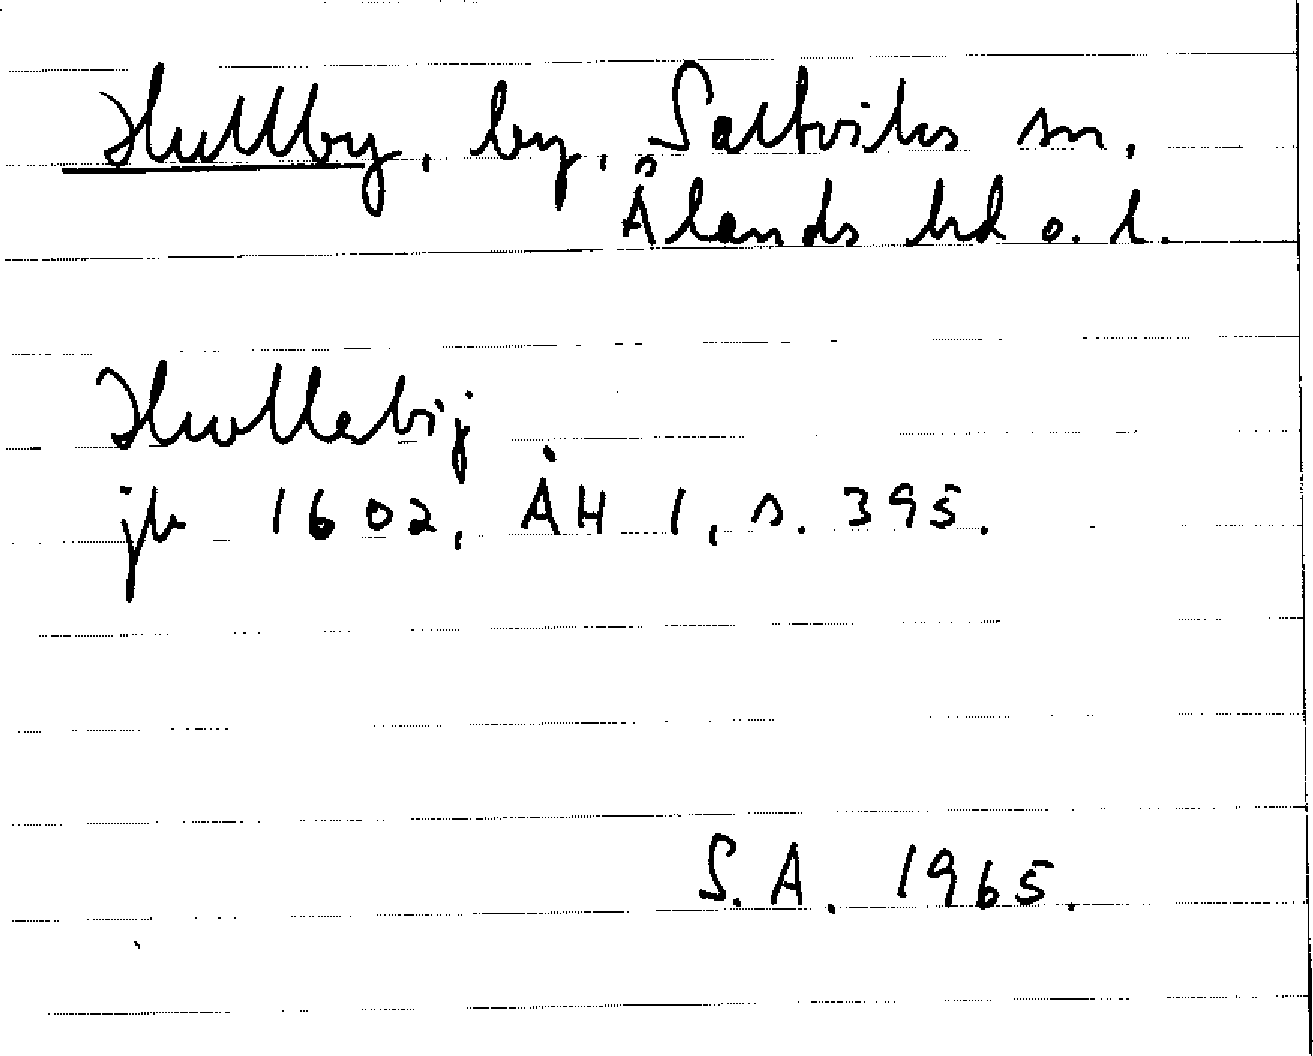 Hullby, by, Saltviks sn,
Ålands hd o. l.
Hwllabij
jb 1602, ÅH 1, s. 395.
S.A. 1965.